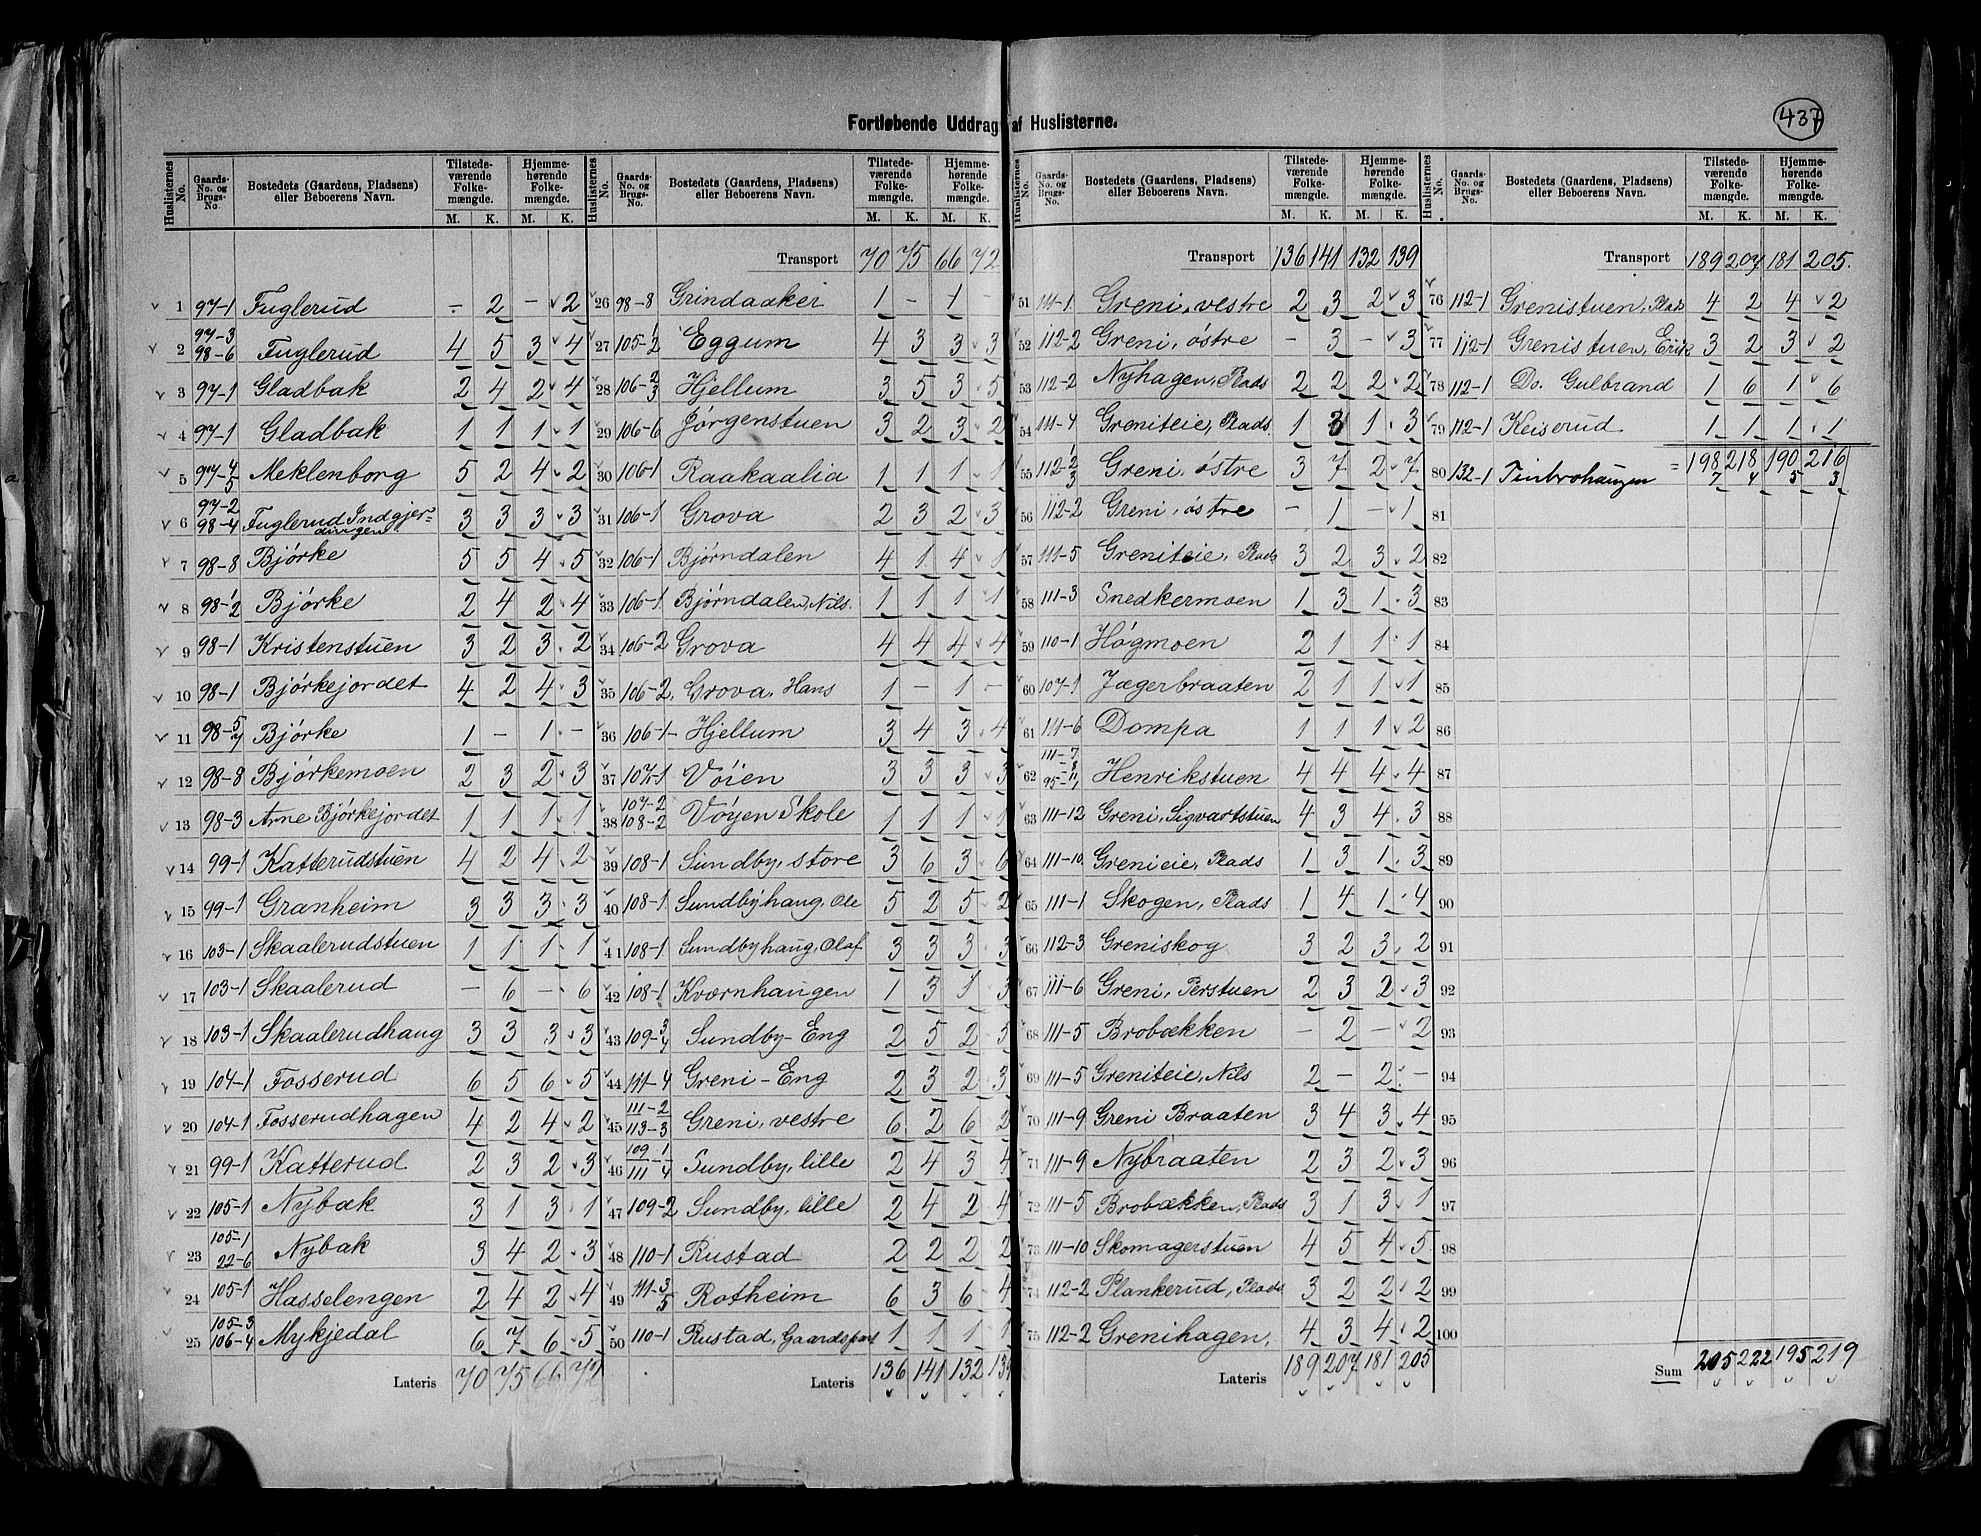 437
Fortløbende Uddrag af Huslisterne.
Huslisternes No. Gaards-No. og Brugs-No. Bostedets (Gaardens, Pladsens) eller Beboerens Navn. Tilstedeværende Folkemængde. M. K. Hjemmehørende Folkemængde. M. K.
1 97-1 Fuglerud - 2 - 2
2 97-3 98-6 Fuglerud 4 5 3 4
3 97-1 Gladbak 2 4 2 4
4 97-1 Gladbak 1 1 1 1
5 97-4 5 Meklenborg 5 2 4 2
6 97-2 98-4 Fuglerud Indgjerdingen 3 3 3 3
7 98-8 Bjørke 5 5 4 5
8 98-1 2 Bjørke 2 4 2 4
9 98-1 Kristenstuen 3 2 3 2
10 98-1 Bjørkejordet 4 2 4 3
11 98-5 7 Bjørke 1 - 1 -
12 98-8 Bjørkemoen 2 3 2 3
13 98-3 Arne Bjørkejordet 1 1 1 1
14 99-1 Katterudstuen 4 2 4 2
15 99-1 Granheim 3 3 3 3
16 103-1 Skaalerudstuen 1 1 1 1
17 103-1 Skaalerud - 6 - 6
18 103-1 Skaalerudhaug 3 3 3 3
19 104-1 Fosserud 6 5 6 5
20 104-1 Fosserudhagen 4 2 4 2
21 99-1 Katterud 2 3 2 3
22 105-1 Nybak 3 1 3 1
23 105-1 22-6 Nybak 3 4 2 3
24 105-1 Hasselengen 2 4 2 4
25 105-3 106-4 Mykjedal 6 7 6 5
Lateris 70 75 66 72
Huslisternes No. Gaards-No. og Brugs-No. Bostedets (Gaardens, Pladsens) eller Beboerens Navn. Tilstedeværende Folkemængde. M. K. Hjemmehørende Folkemængde. M. K.
Transport 70 75 66 72
26 98-8 Grindaaker 1 - 1 -
27 105-1 2 Eggum 4 3 3 3
28 106-2 3 Hjellum 3 5 3 5
29 106-6 Jørgenstuen 3 2 3 2
30 106-1 Raakaalia 1 1 1 1
31 106-1 Grova 2 3 2 3
32 106-1 Bjørndalen 4 1 4 1
33 106-1 Bjørndalen, Nils. 1 1 1 1
34 106-2 Grova 4 4 4 4
35 106-2 Grova, Hans 1 - 1 -
36 106-1 Hjellum 3 4 3 4
37 107-1 Vöien 3 3 3 3
38 107-2 108-2 Vøyen Skole 1 1 1 1
39 108-1 Sundby, store 3 6 3 6
40 108-1 Sundbyhaug, Ole 5 2 5 2
41 108-1 Sundbyhaug, Olaf 3 3 3 3
42 108-1 Kværnhaugen 1 3 1 3
43 109-3 4 Sundby-Eng 2 5 2 5
44 111-4 Greni-Eng 2 3 2 3
45 111-2 113-3 Greni, vestre 6 2 6 2
46 109-1 111-4 Sundby, lille 2 4 3 4
47 109-2 Sundby, lille 2 4 2 4
48 110-1 Rustad 2 2 2 2
49 111-3 5 Rotheim 6 3 6 4
50 110-1 Rustad, Gaardspart 1 1 1 1
Lateris 136 141 132 139
Huslisternes No. Gaards-No. og Brugs-No. Bostedets (Gaardens, Pladsens) eller Beboerens Navn. Tilstedeværende Folkemængde. M. K. Hjemmehørende Folkemængde. M. K.
Transport 136 141 132 139
51 111-1 Greni, vestre 2 3 2 3
52 112-2 Greni, østre - 3 - 3
53 112-2 Nyhagen, Plads 2 2 2 2
54 111-4 Greniteie, Plads 1 3 1 3
55 112-2 3 Greni, østre 3 7 2 7
56 112-2 Greni, østre - 1 - 1
57 111-5 Greniteie, Plads 3 2 3 2
58 111-3 Snedkermoen 1 3 1 3
59 110-1 Høgmoen 2 1 1 1
60 107-1 Jægerbraaten 2 1 1 1
61 111-6 Dompa 1 1 1 2
62 111-7 8 95-11 Henrikstuen 4 4 4 4
63 111-12 Greni, Sigvartstuen 4 3 4 3
64 111-10 Grenieie, Plads 1 3 1 3
65 111-1 Skogen, Plads 1 4 1 4
66 112-3 Greniskog 3 2 3 2
67 111-6 Greni, Perstuen 2 3 2 3
68 111-5 Brobækken - 2 - 2
69 111-5 Greniteie, Nils 2 - 2 -
70 111-9 Greni Braaten 3 4 3 4
71 111-9 Nybraaten 2 3 2 3
72 111-5 Brobækken, Plads 3 1 3 1
73 111-10 Skomagerstuen 4 5 4 5
74 112-2 Plankerud, Plads 3 2 2 2
75 112-2 Grenihagen, 4 3 4 2
Lateris 189 207 181 205
Huslisternes No. Gaards-No. og Brugs-No. Bostedets (Gaardens, Pladsens) eller Beboerens Navn. Tilstedeværende Folkemængde. M. K. Hjemmehørende Folkemængde. M. K.
Transport 189 207 181 205.
76 112-1 Grenistuen, Plads 4 2 4 2
77 112-1 Grenistuen, Erik 3 2 3 2
78 112-1 Do. Gulbrand 1 6 1 6
79 112-1 Keiserud 1 1 1 1
= 198 218 190 216
80 132-1 Tinbrohaugen 7 4 5 3
81
82
83
84
85
86
87
88
89
90
91
92
93
94
95
96
97
98
99
100
Sum 205 222 195 219